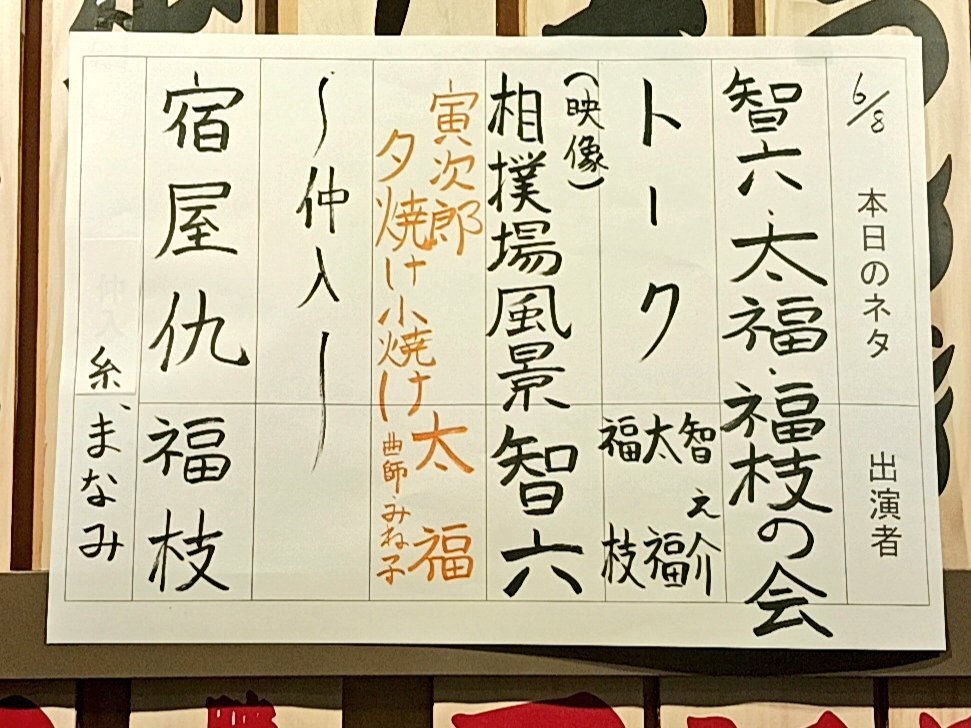 6/8 本日のネタ 出演者
智六・太福・福枝の会
トーク
(映像)
智之介
太福
福枝
相撲場風景 智六
寅次郎
夕焼け小焼け
太福
曲師・みね子
〜仲入〜
宿屋仇 福枝
糸、まなみ